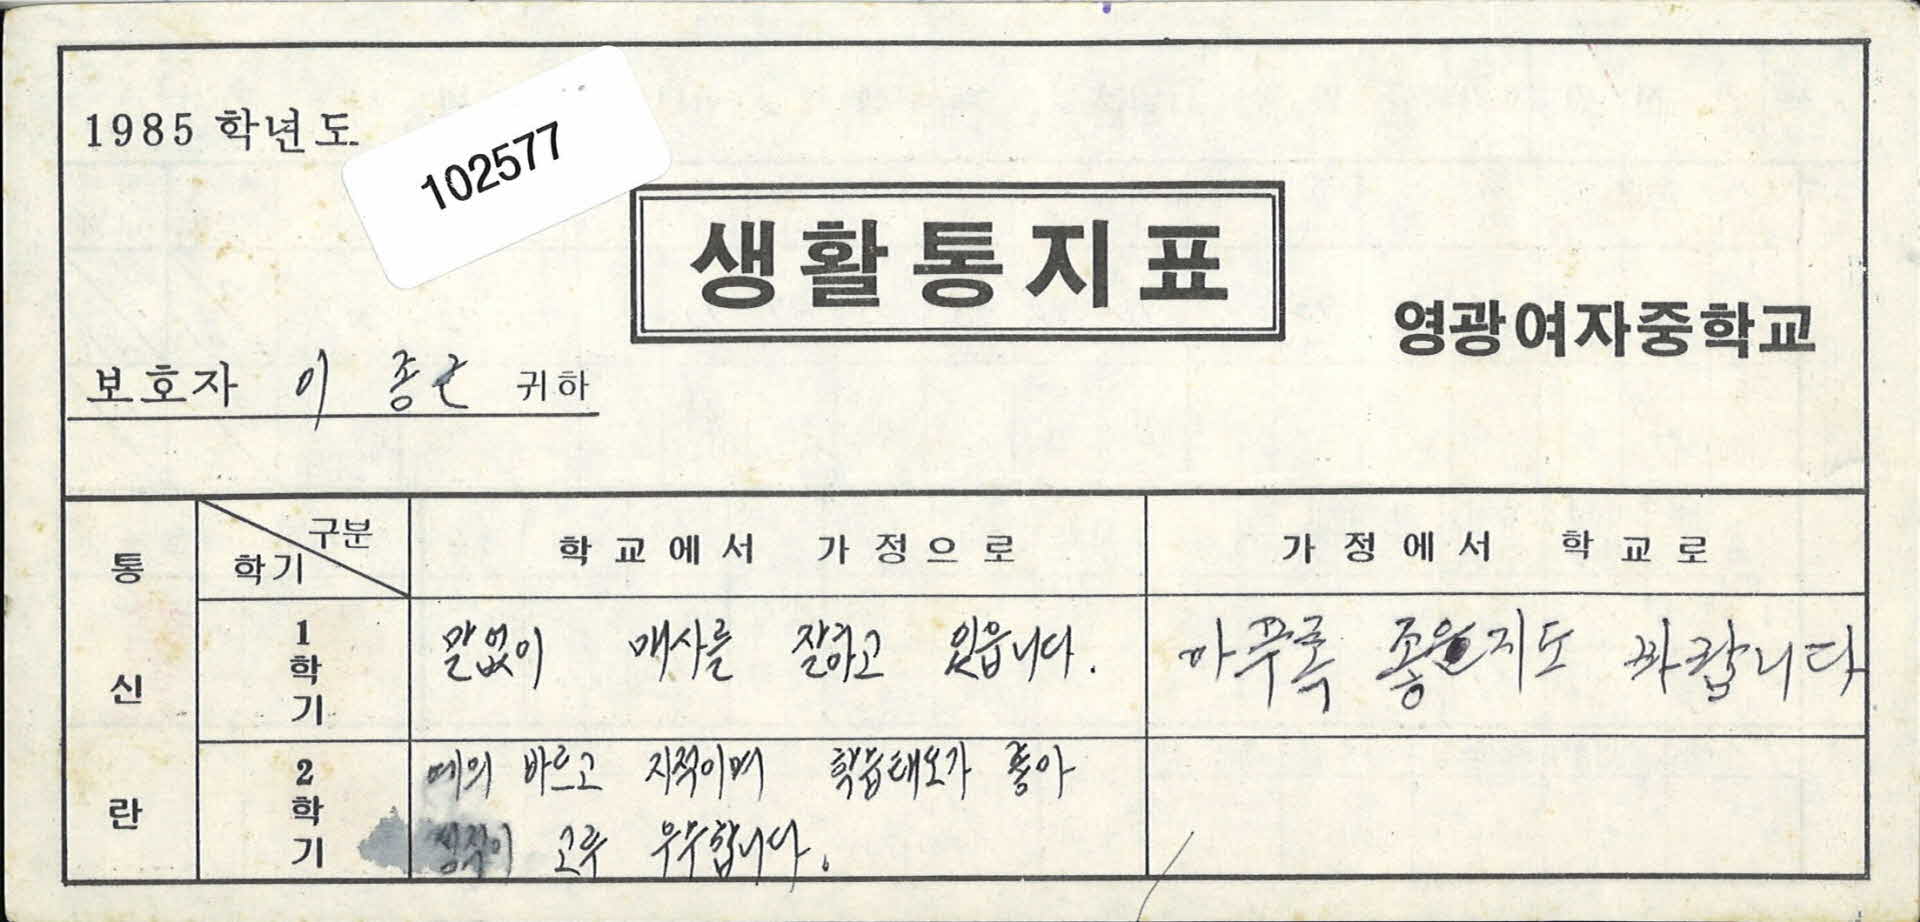 1985 학년도
102577
생활통지표
영광여자중학교
보호자 이 종근 귀하
통신란
구분
학기
학교에서 가정으로
가정에서 학교로
1학기
말없이 매사를 잘하고 있읍니다.
아무쪼록 좋은 지도 바랍니다
2학기
예의 바르고 지적이며 학습태도가 좋아
성적이 고루 우수합니다.